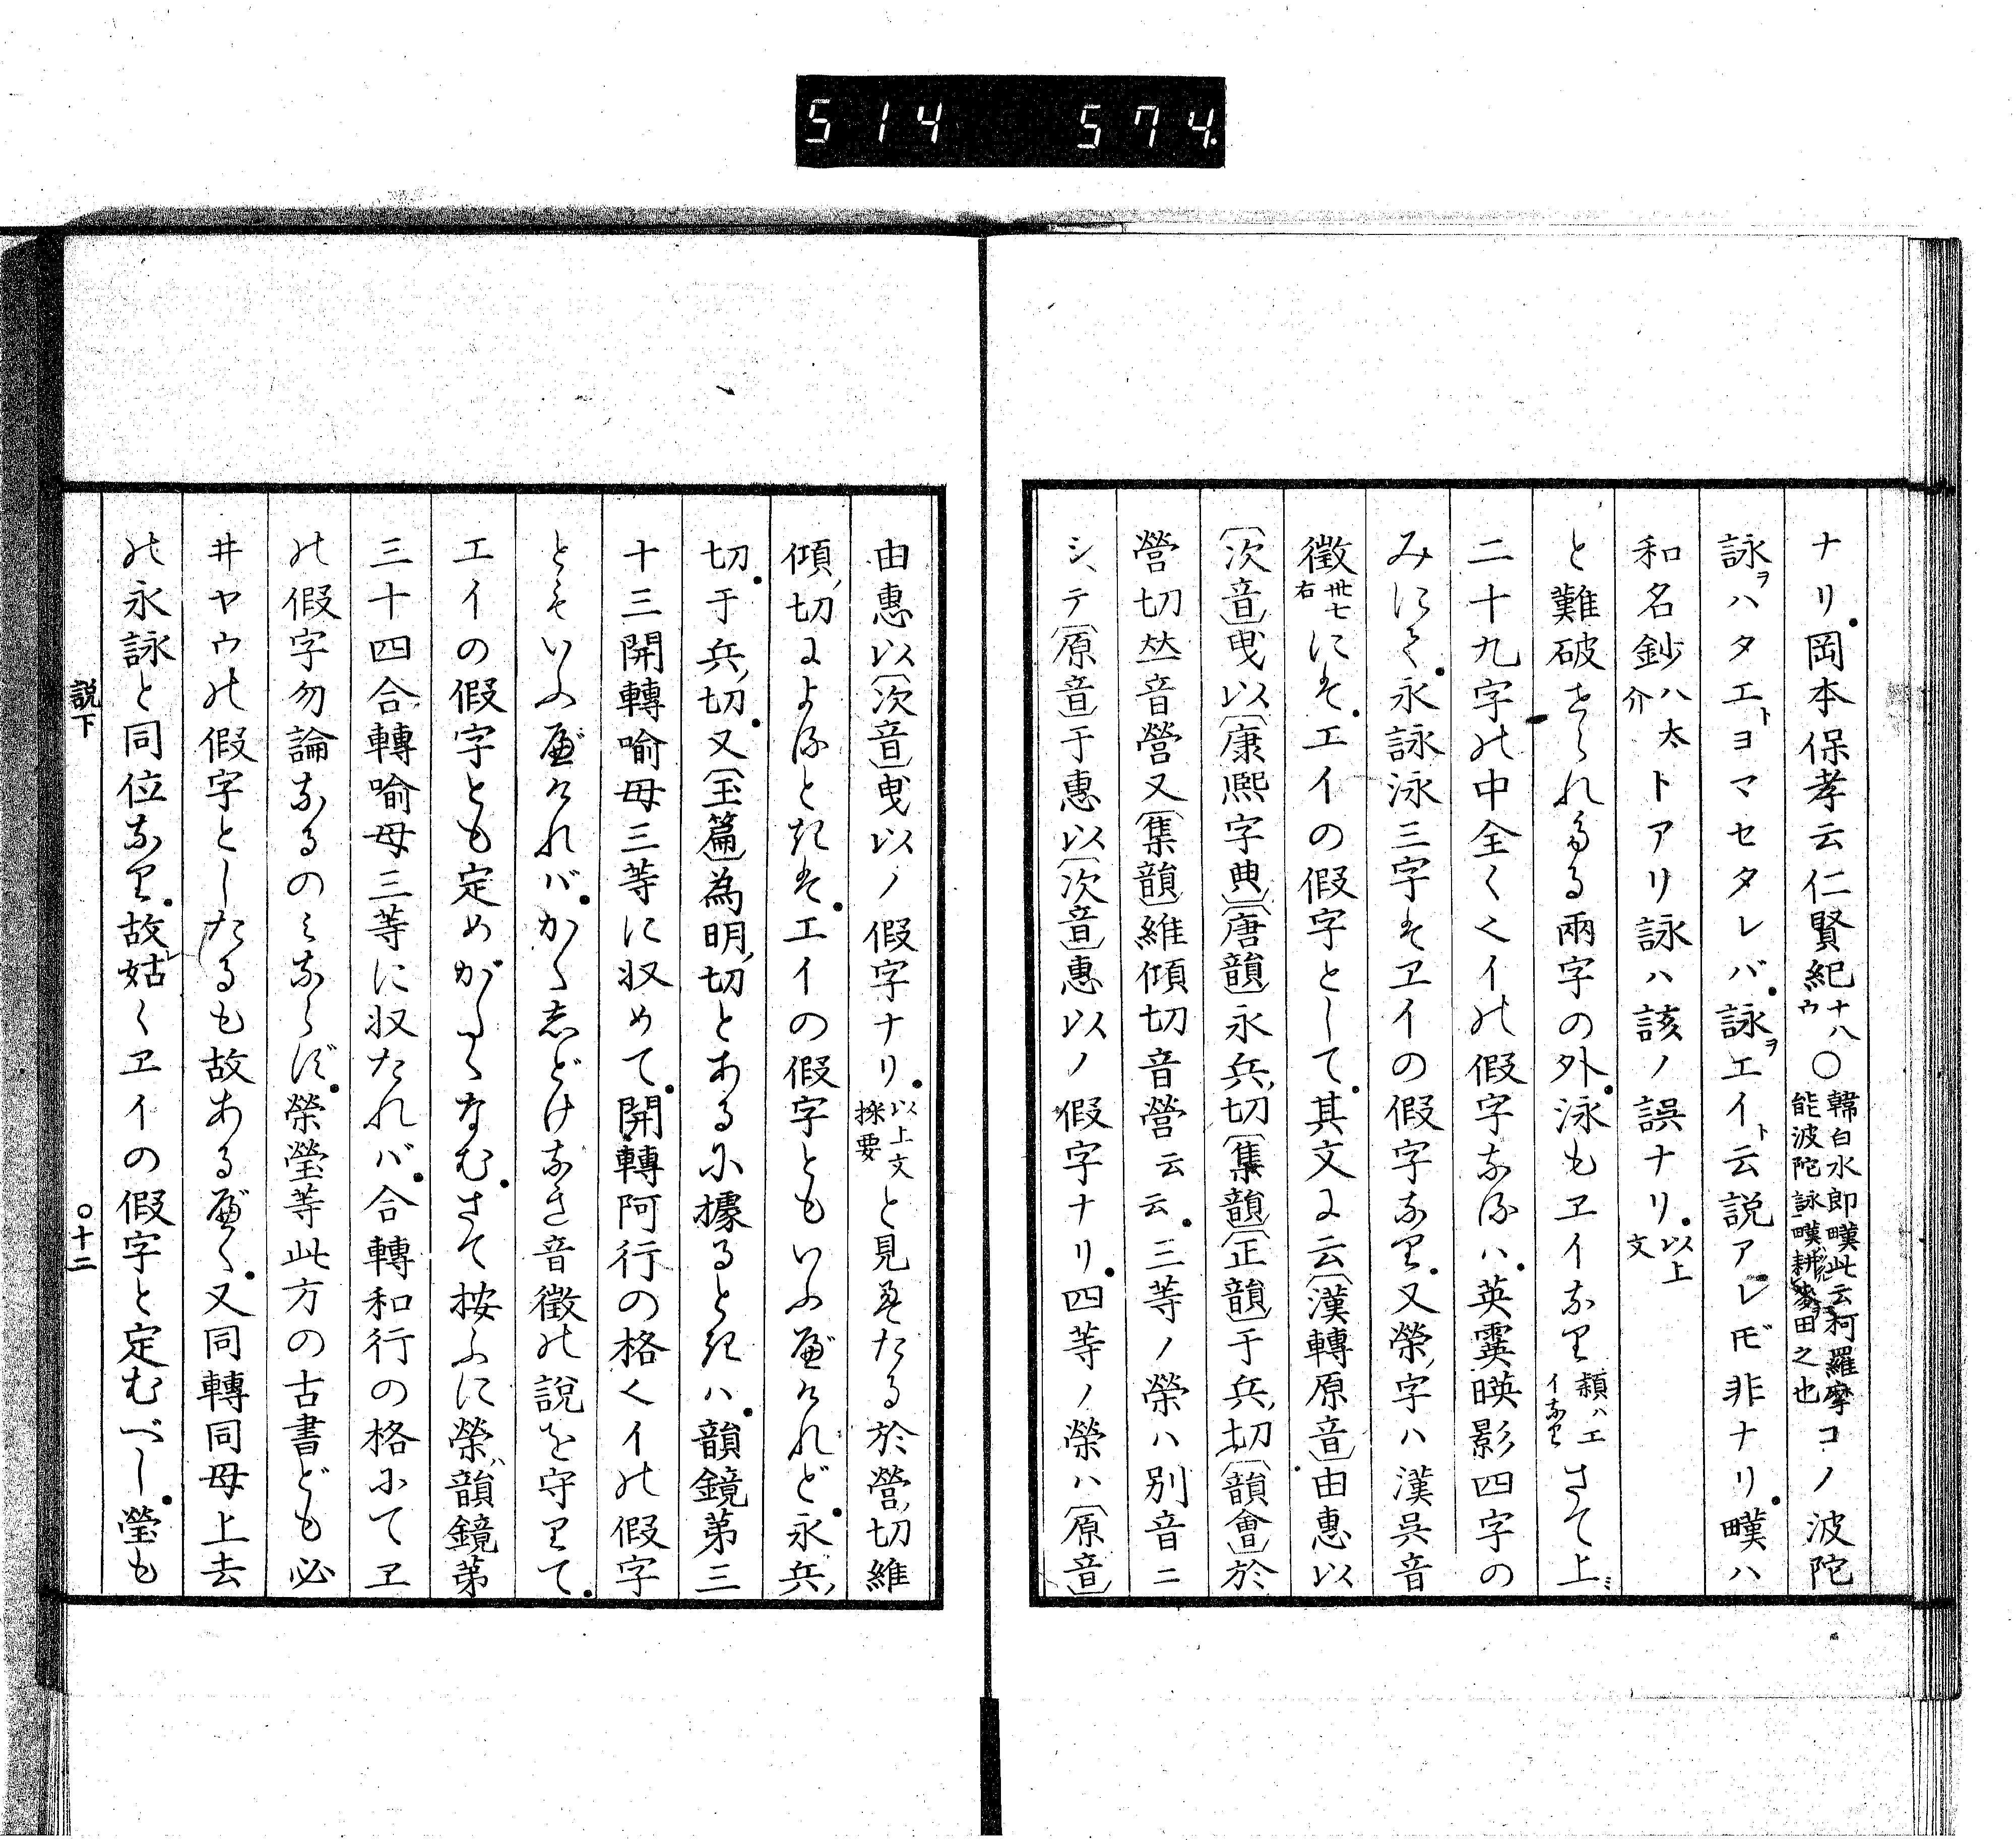 514 574.
ナリ。岡本保孝云仁賢紀十八ウ〇韓白水郎𤳉此云柯羅摩能波陀詠𤳉耕麥田之也コノ波陀
詠ヲハタエトヨマセタレバ。詠ヲエイト云説アレドモ非ナリ。𤳉ハ
和名鈔ハ太介トアリ詠ハ該ノ誤ナリ。以上文
と難破せられたる兩字の外。泳もヱイなり頴ハエイなりさて上ミ
二十九字の中全くエイの假字なるハ。英霙暎影四字の
みにて。永詠泳三字はヱイの假字なり。又榮字ハ漢呉音
徵卅七右には。エイの假字として。其文に云〔漢轉原音〕由惠以
〔次音〕曳以〔康熙字典〕〔唐韻〕永兵切〔集韻〕〔正韻〕于兵切〔韻會〕於
營切𠀤音營又〔集韻〕維傾切音營云云。三等ノ榮ハ別音ニ
シテ〔原音〕于惠以〔次音〕惠以ノ假字ナリ。四等ノ榮ハ〔原音〕
由惠以〔次音〕曳以ノ假字ナリ。以上文採要と見えたる於營切維
傾切によるときは。エイの假字ともいふべけれど。永兵
切。于兵切。又〔玉篇〕為明切とあるに據るときハ。韻鏡第三
十三開轉喩母三等に収めて。開轉阿行の格くイの假字
とそいふべけれバ。かくしどけなき音徵の説を守りて。
エイの假字とも定めがたくなむ。さて按ふに榮ハ韻鏡第
三十四合轉喩母三等に収たれバ。合轉和行の格にてヱ
の假字勿論なるのみならず。榮瑩等此方の古書ども必
ヰヤウの假字としたるも故あるべく。又同轉同母上去
の永詠と同位なり。故レ姑くヱイの假字と定むべし。瑩も
説下 〇十二